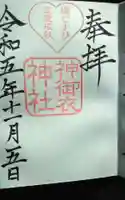 奉拝
神御衣
神社
令和五年十一月五日